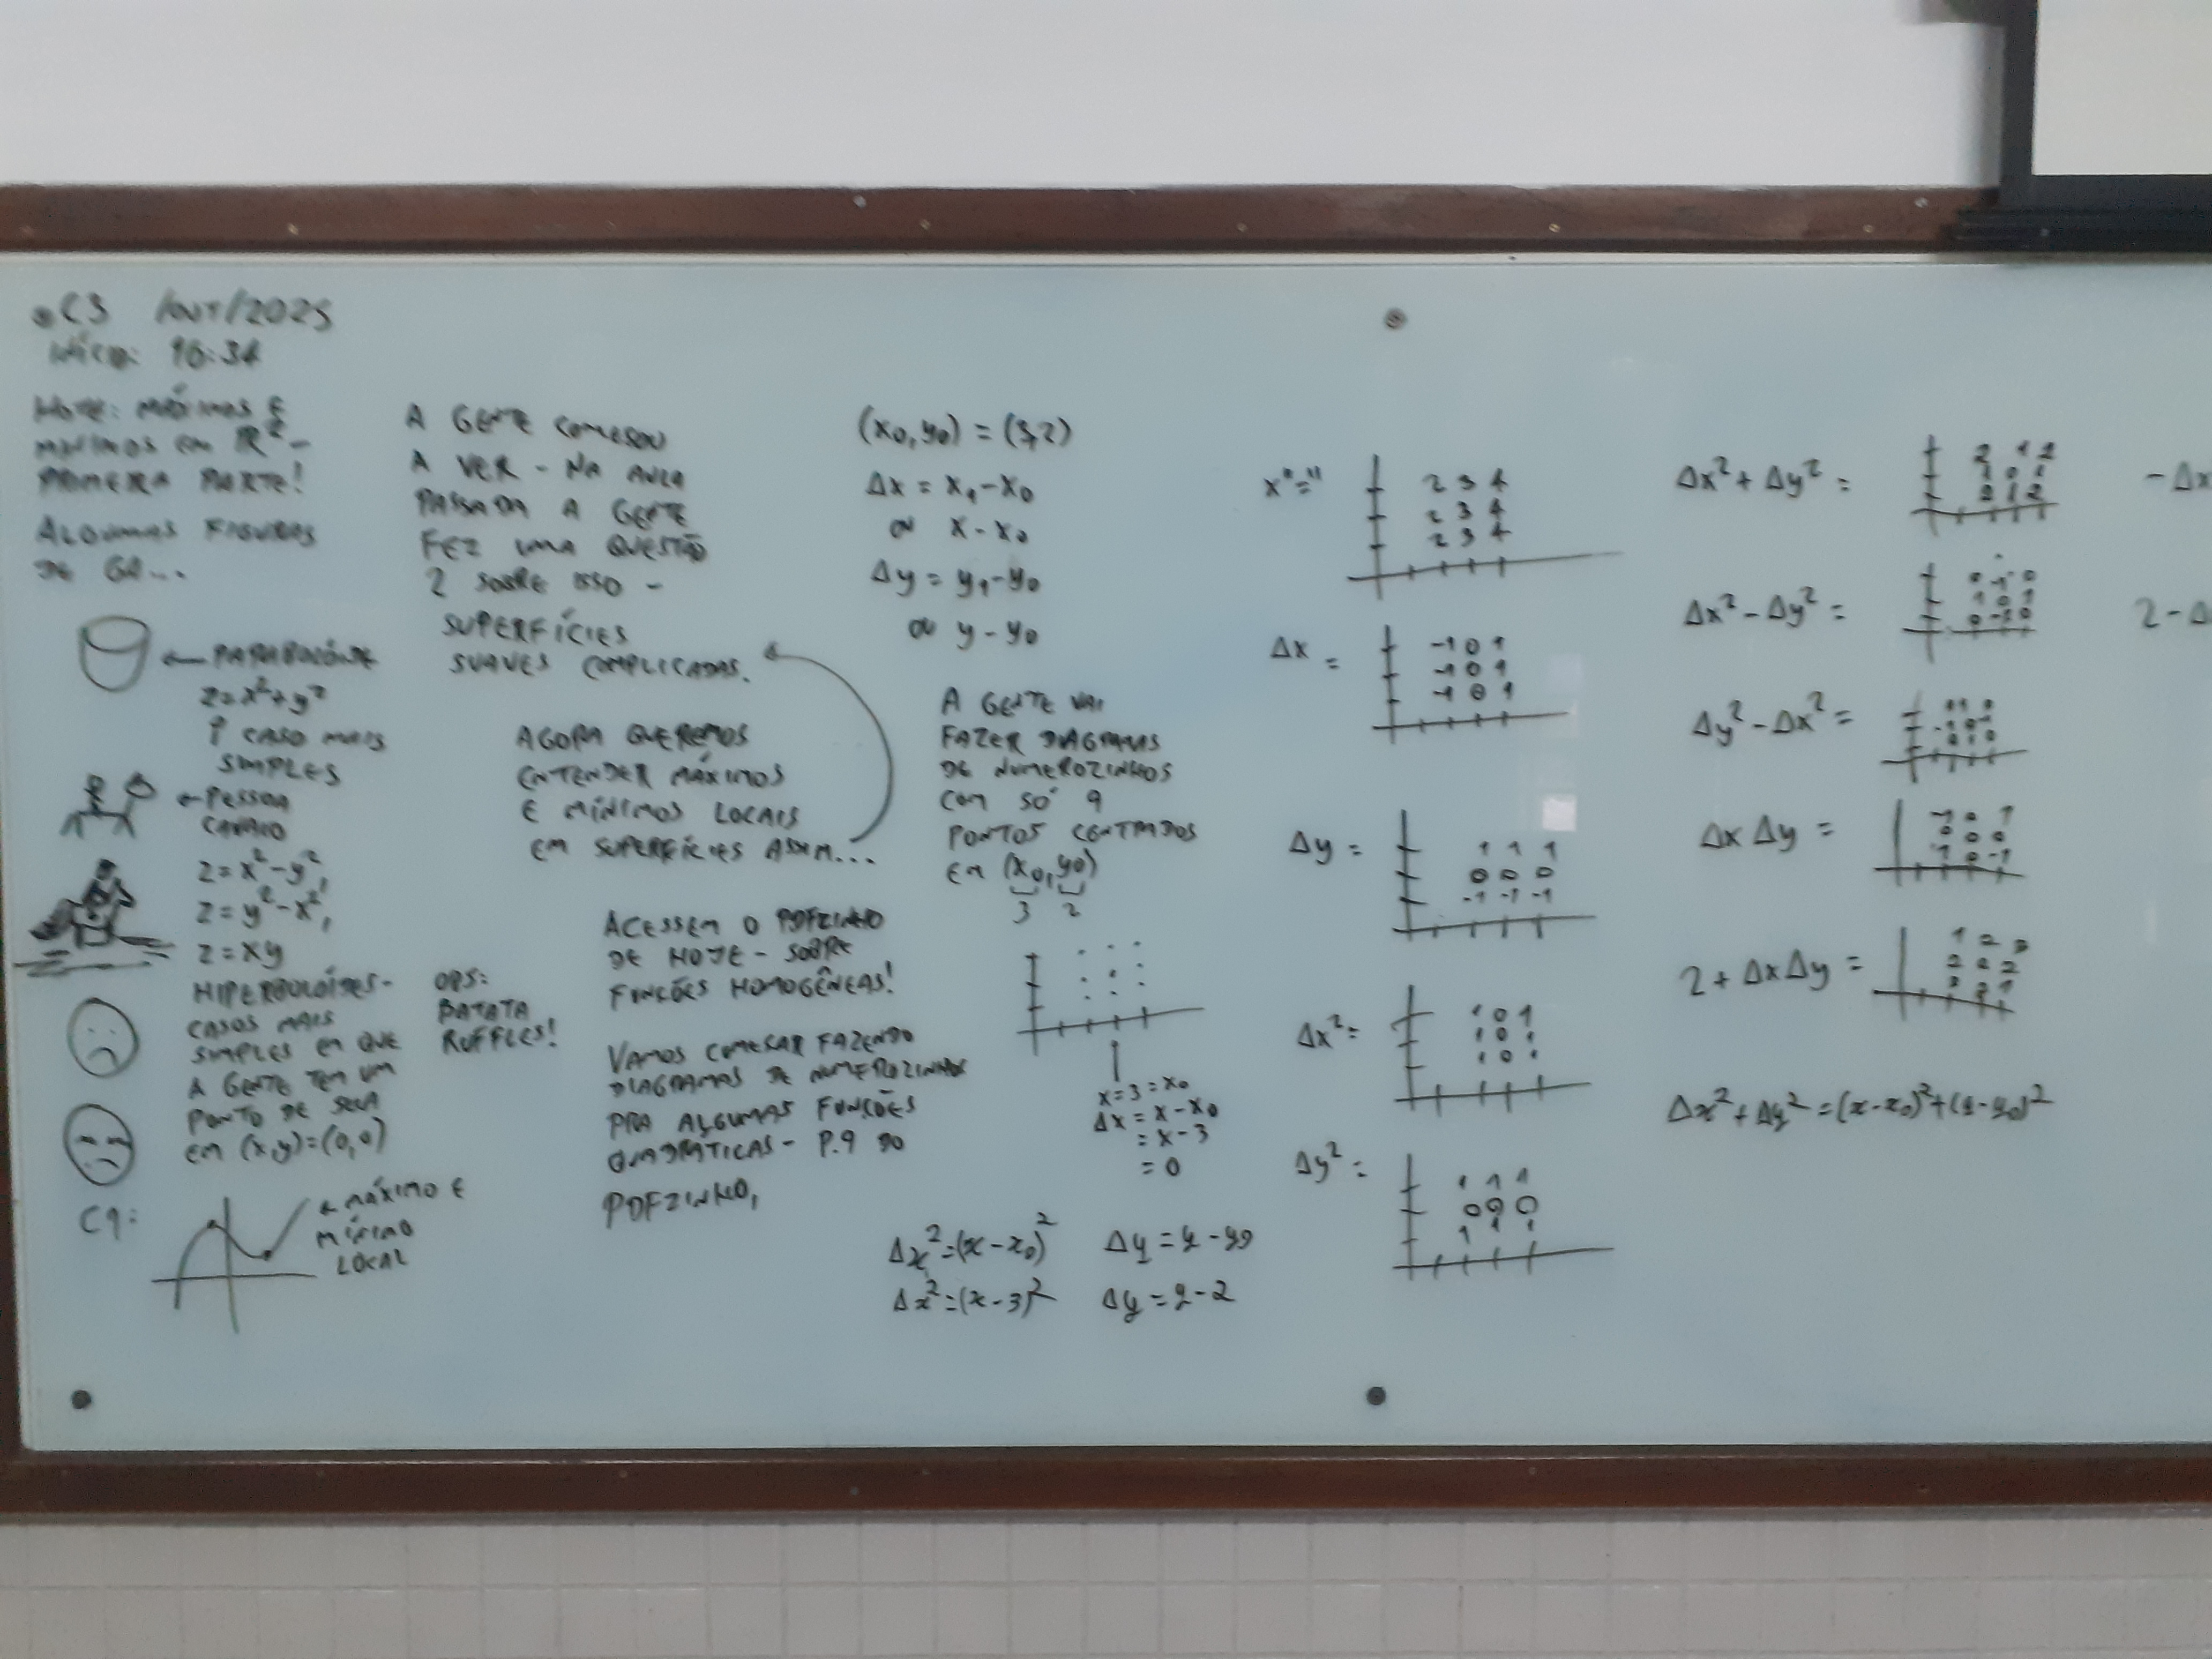 C3 /OUT/2025
INÍCIO: 16:34
HOJE: MÁXIMOS E
MÍNIMOS EM R² -
PRIMEIRA PARTE!
ALGUMAS FIGURAS
DE GA...
← PARABOLÓIDE
z=x²+y²
↑ CASO MAIS
SIMPLES
← PESSOA
CAVALO
z=x²-y²,
z=y²-x²,
z=xy
HIPERBOLÓIDES -
CASOS MAIS
SIMPLES EM QUE
A GENTE TEM UM
PONTO DE SELA
EM (x,y)=(0,0)
OPS:
BATATA
RUFFLES!
C1:
← MÁXIMO E
MÍNIMO
LOCAL
A GENTE COMEÇOU
A VER - NA AULA
PASSADA A GENTE
FEZ UMA QUESTÃO
2 SOBRE ISSO -
SUPERFÍCIES
SUAVES COMPLICADAS.
AGORA QUEREMOS
ENTENDER MÁXIMOS
E MÍNIMOS LOCAIS
EM SUPERFÍCIES ASSIM...
ACESSEM O PDFZINHO
DE HOJE - SOBRE
FUNÇÕES HOMOGÊNEAS!
VAMOS COMEÇAR FAZENDO
DIAGRAMAS DE NUMEROZINHOS
PRA ALGUMAS FUNÇÕES
QUADRÁTICAS - P.9 DO
PDFZINHO,
(x₀,y₀) = (3,2)
Δx = x₁-x₀
OU x-x₀
Δy = y₁-y₀
OU y-y₀
A GENTE VAI
FAZER DIAGRAMAS
DE NUMEROZINHOS
COM SÓ 9
PONTOS CENTRADOS
EM (x₀,y₀)
3 2
x=3=x₀
Δx = x-x₀
= x-3
= 0
Δx²=(x-x₀)² Δy = y-y₀
Δx²=(x-3)² Δy = y-2
x"="
2 3 4
2 3 4
2 3 4
Δx =
-1 0 1
-1 0 1
-1 0 1
Δy =
1 1 1
0 0 0
-1 -1 -1
Δx²=
1 0 1
1 0 1
1 0 1
Δy²=
1 1 1
0 0 0
1 1 1
Δx²+Δy² =
2 1 2
1 0 1
2 1 2
Δx²-Δy² =
0 -1 0
1 0 1
0 -1 0
Δy²-Δx² =
ΔxΔy =
-1 0 1
0 0 0
1 0 -1
2+ΔxΔy =
1 2 3
2 2 2
3 2 1
Δx²+Δy² =(x-x₀)²+(y-y₀)²
-Δx
2-Δ